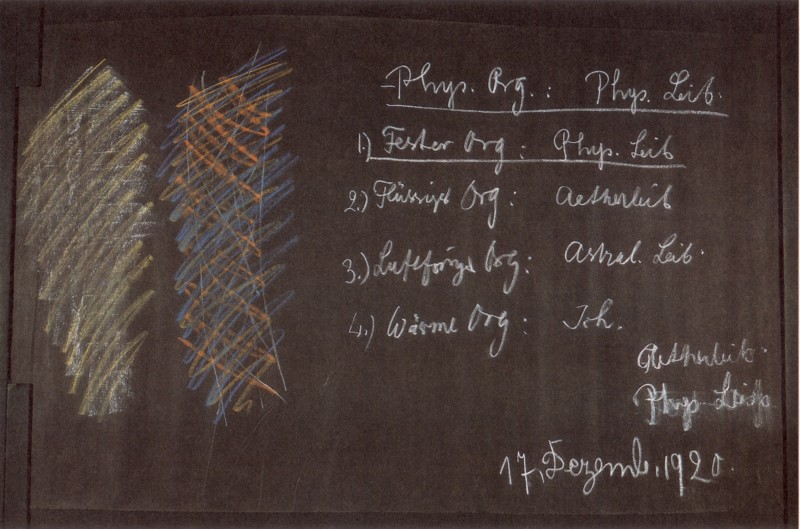 Phys. Org.: Phys. Leib.
1.) Fester Org: Phys. Leib
2.) Flüssiger Org: Aetherleib
3.) Luftförmiger Org: Astral. Leib.
4.) Wärme Org: Ich.
Aetherleib.
Phys. Leib
17. Dezemb. 1920.